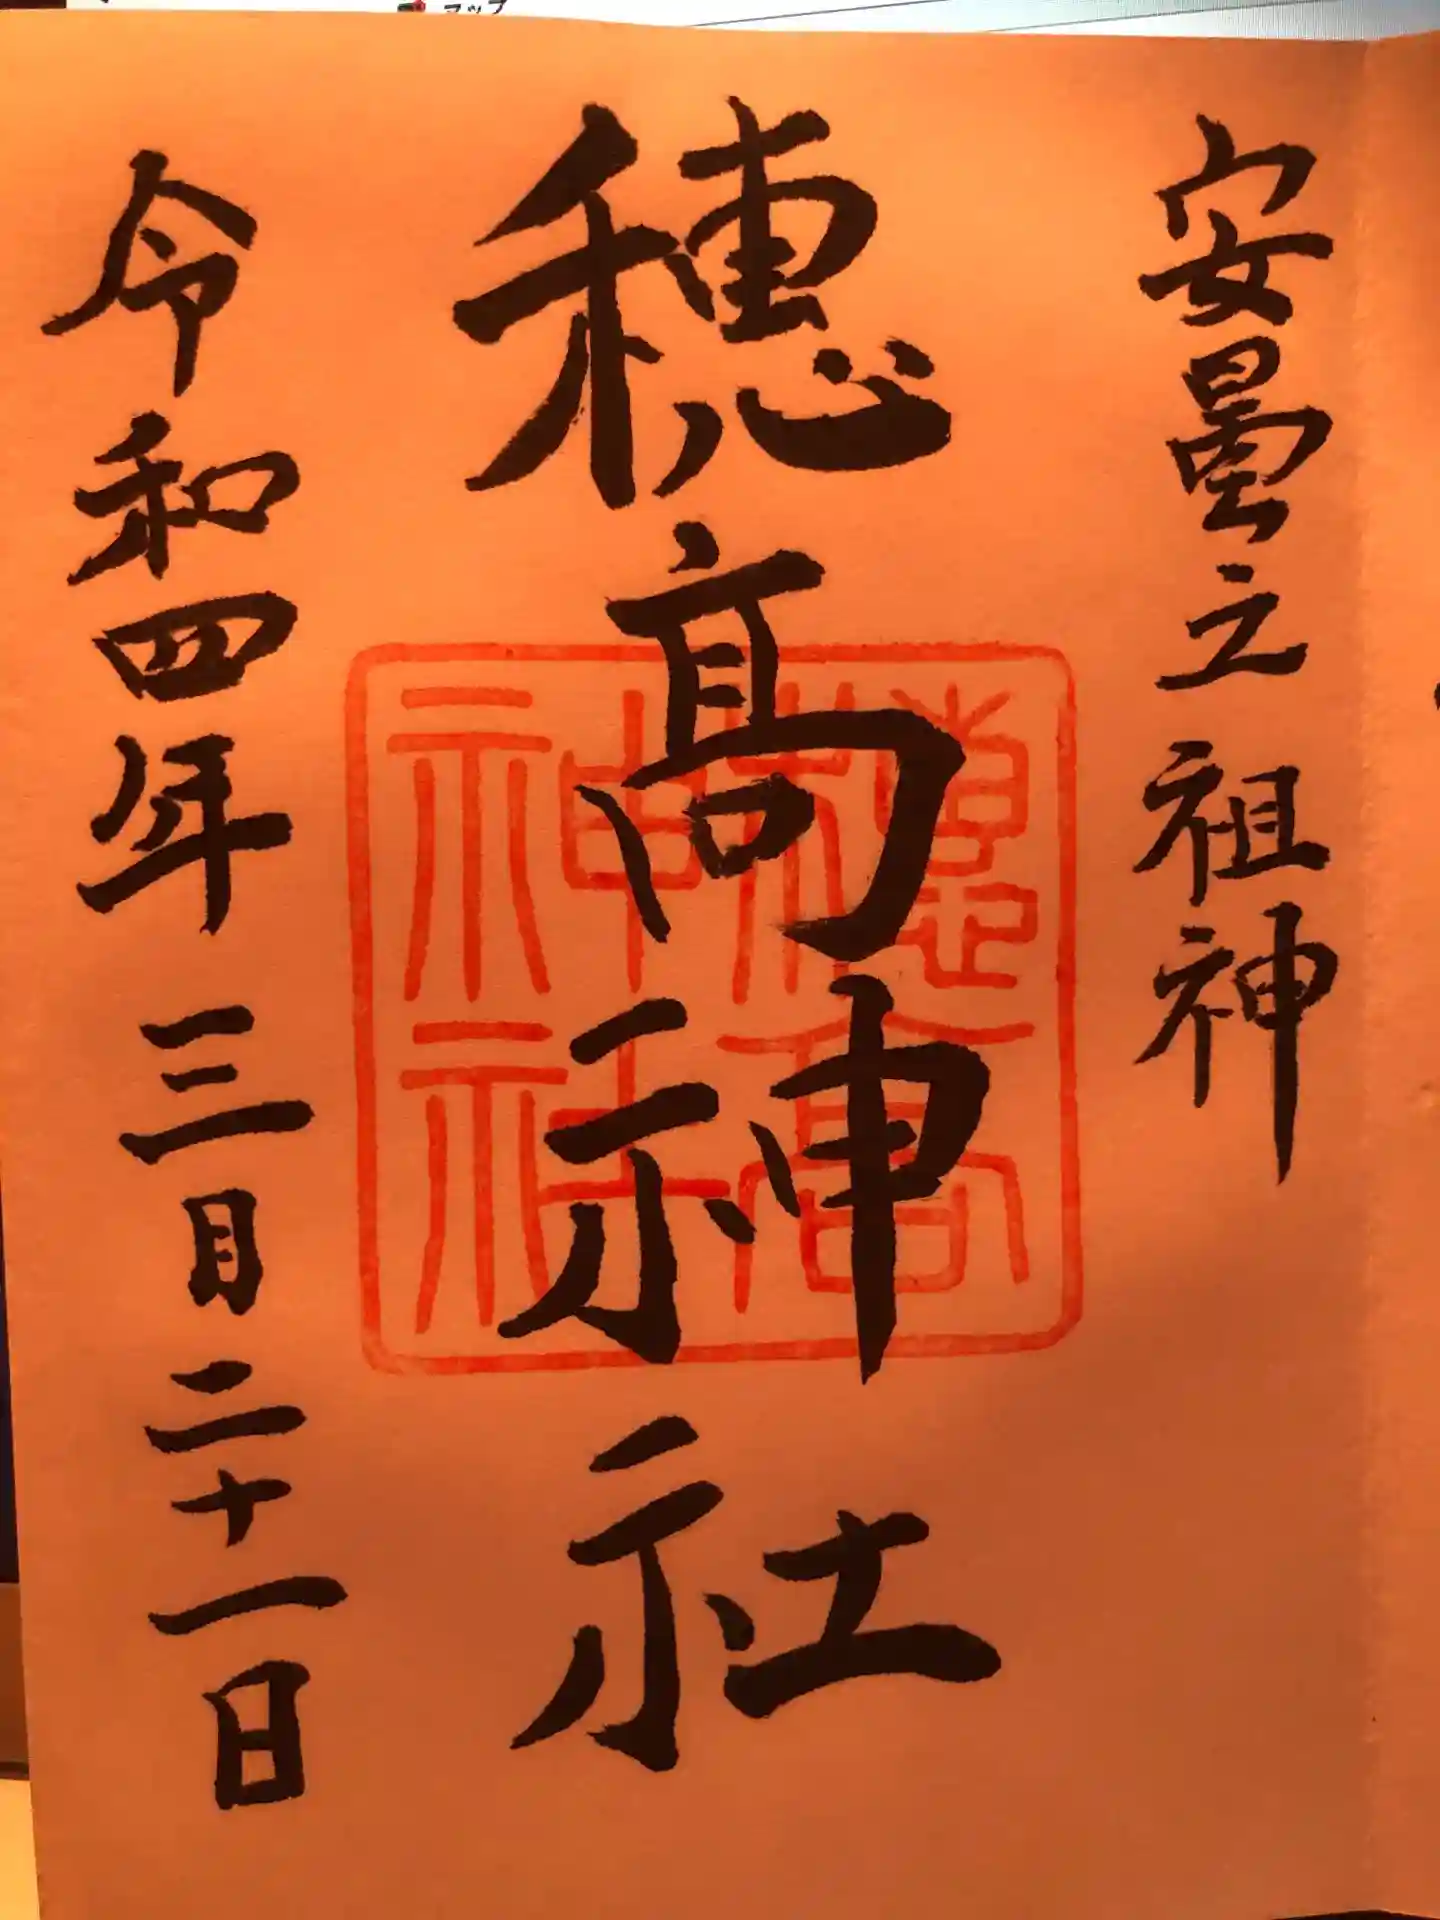 マップ
安曇之祖神
穂髙神社
穂高神社
令和四年三月二十一日